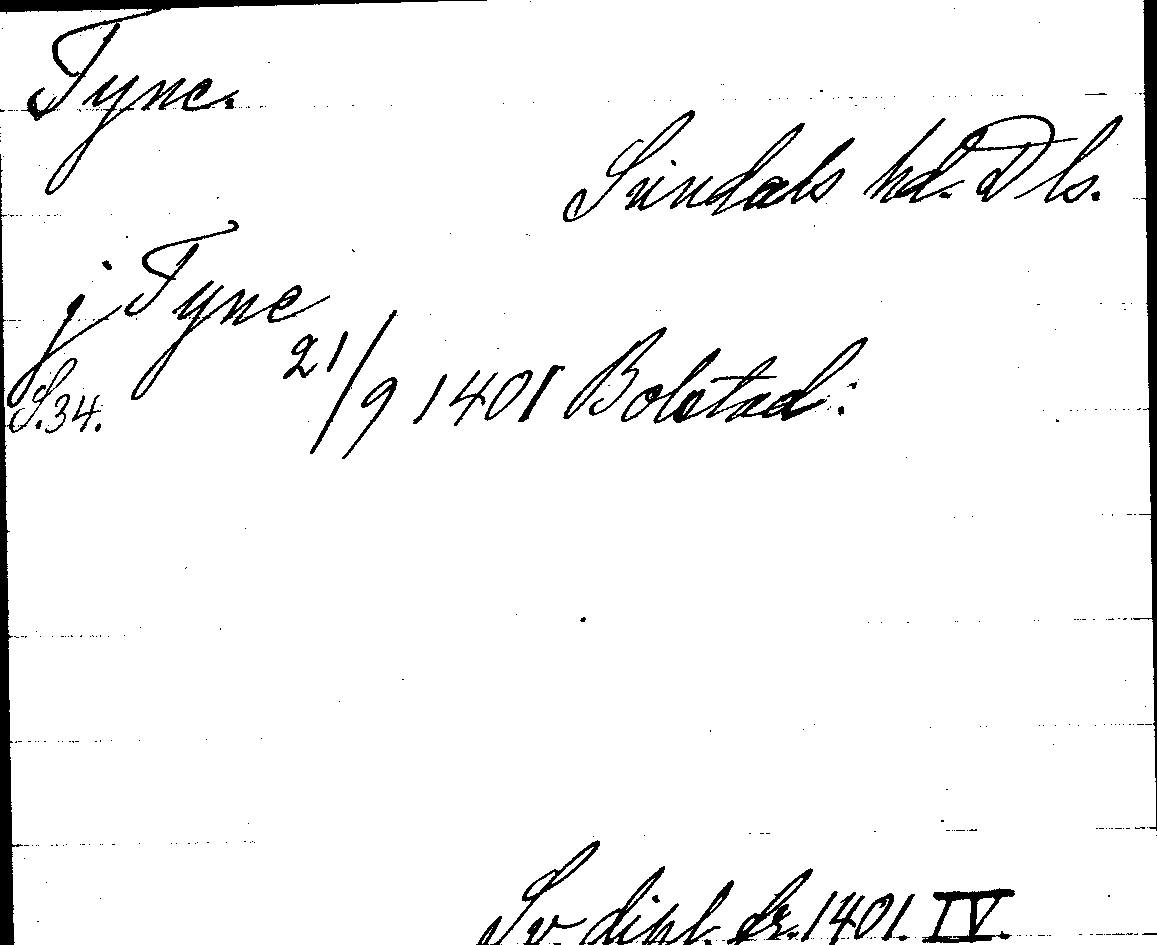 Tyne.
Sundals hd. Dls.
j Tyne
S. 34. 21/9 1401 Bolstad:
Sv. dipl. fr. 1401. IV.